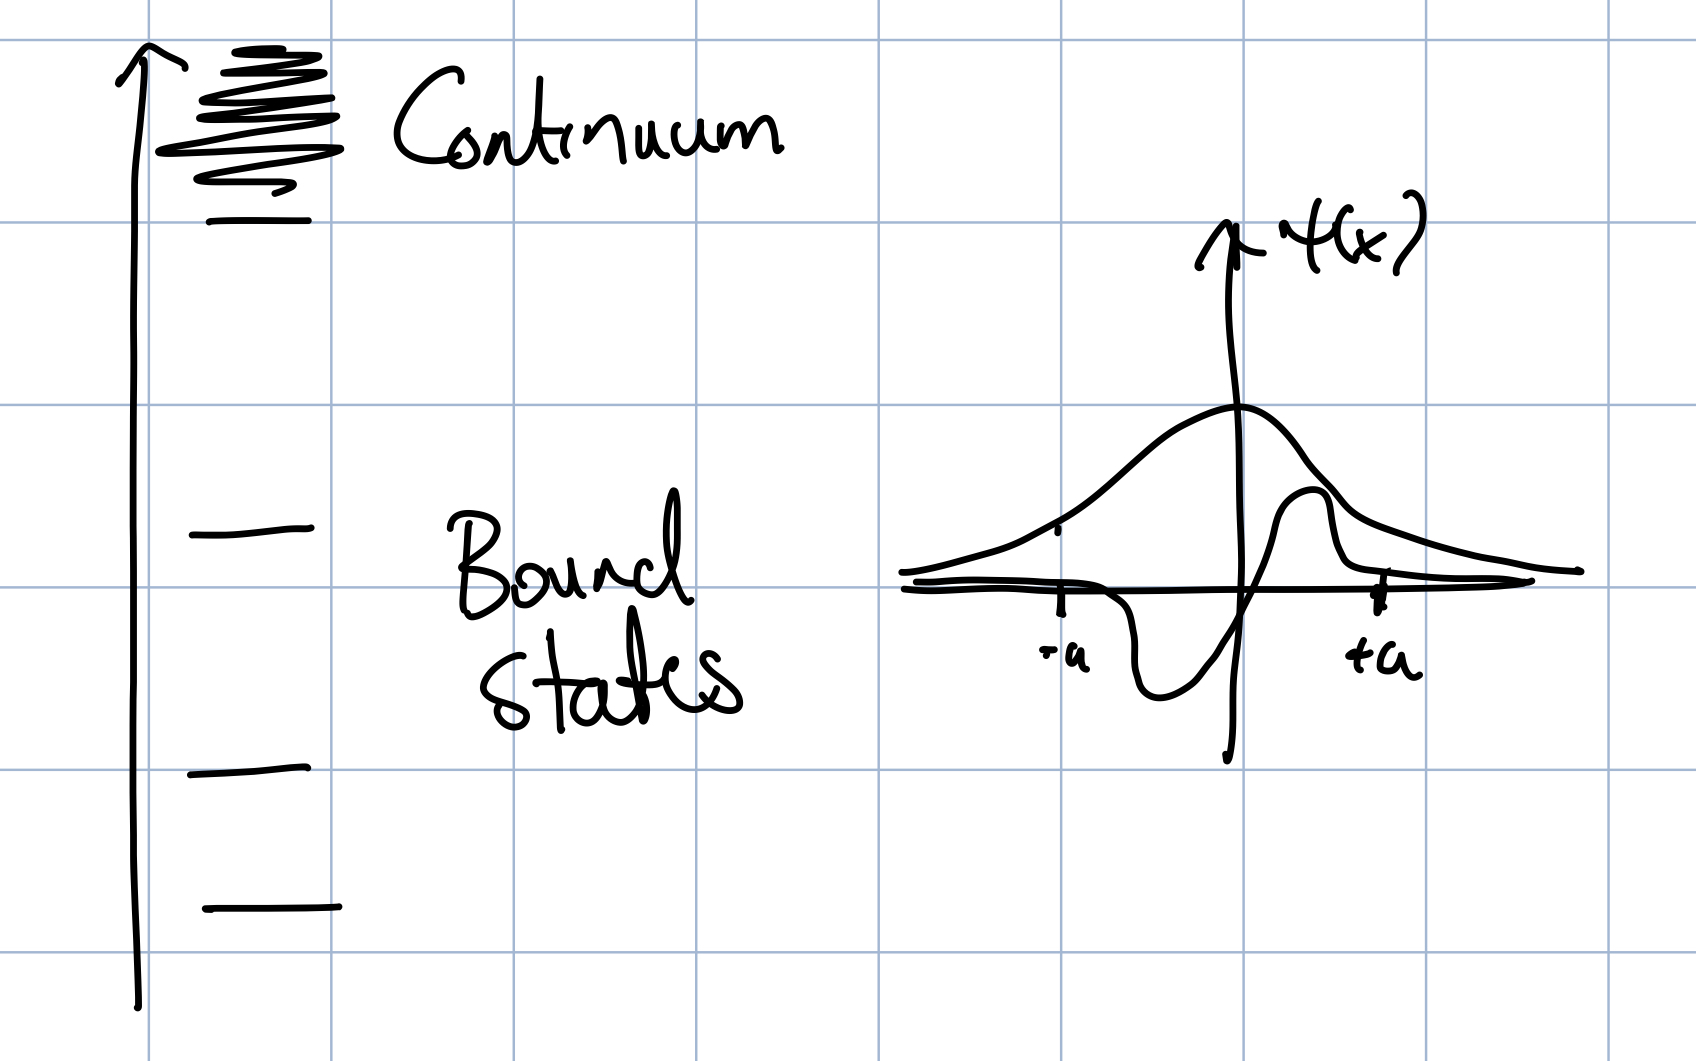 Continuum
ψ(x)
Bound
states
-a
+a